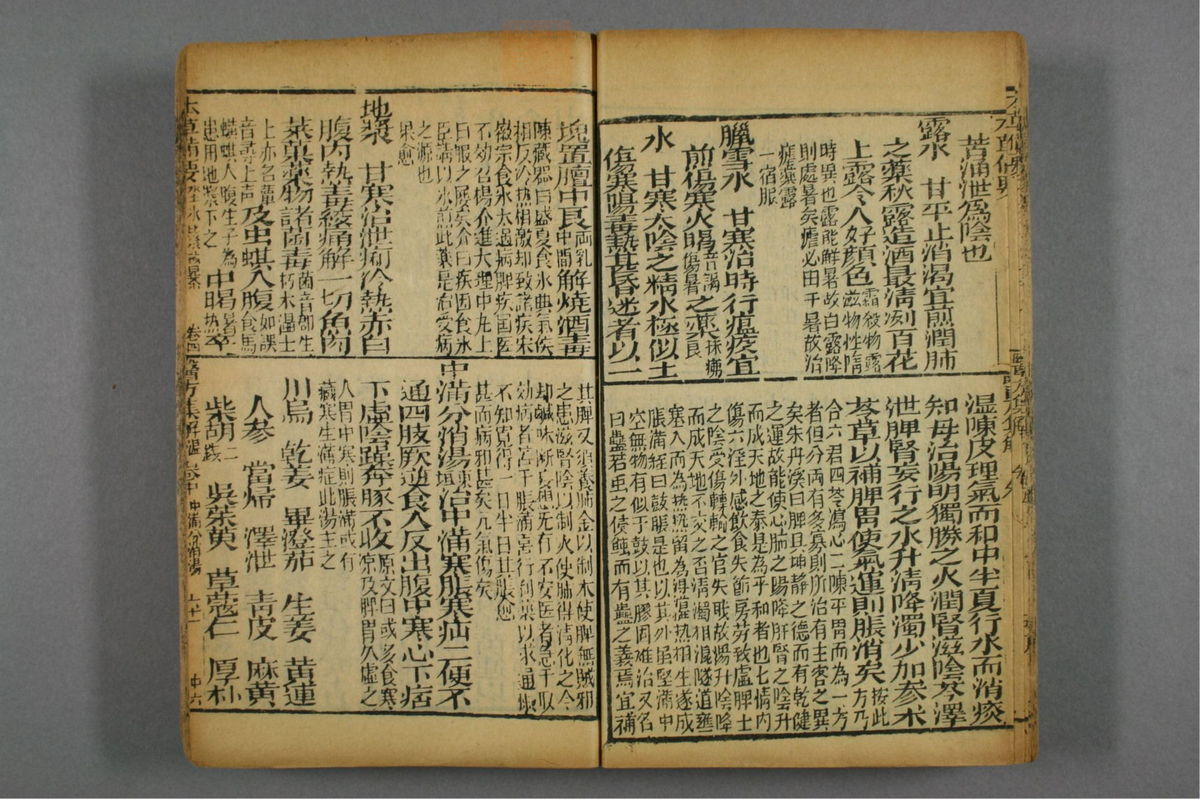 苦涌泄爲陰也
露水　甘平止消渴宜煎潤肺
之藥秋露造酒最清冽百花
上露令人好顏色霜殺物露滋物性隨
時異也露能解暑故白露降
則處暑矣瘧必由于暑故治
瘧藥露
一宿服
臘雪水　甘寒治時行瘟疫宜
煎傷寒火暍音謁傷暑之藥抹痱良
氷　甘寒太陰之精水極似土
傷寒陽毒熱甚昏迷者以一
塊置膻中良兩乳中間解燒酒毒
陳藏器曰盛夏食氷與氣候
相反冷熱相激却致諸疾宋
徽宗食氷太過病脾疾國醫
不効召楊介進大理中丸上
曰服之屢矣介曰疾因食氷
臣請以氷煎此藥是治受病
之源也
果愈
地漿　甘寒治泄痢冷熱赤白
腹內熱毒絞痛解一切魚肉
菜菓藥物諸菌毒菌音郡生朽木濕土
上亦名蕈音尋上聲及虫蜞入腹如誤食馬
蝗蜞入腹生子爲患用地漿下之中暍暑熱卒
本草備要
卷四
濕陳皮理氣而和中半夏行水而消痰
知母治陽明獨勝之火潤腎滋陰苓澤
泄脾腎妄行之水升清降濁少加參朮
苓草以補脾胃使氣運則脹消矣按此方乃
合六君四苓瀉心二陳平胃而為一方
者但分兩有多寡則所治有主客之異
矣朱丹溪曰脾具坤靜之德而有乾健
之運故能使心肺之陽降肝腎之陰升
而成天地之泰是為平和者也七情內
傷六淫外感飲食失節房勞致虛脾土
之陰受傷轉輸之官失職故陽升陰降
而成天地不交之否清濁相混隧道壅
塞入而為熱熱留為濕濕熱相生遂成
脹滿經曰鼓脹是也以其外雖堅滿中
空無物有似于鼓以其膠固難治又名
曰蠱若虫之侵蝕而有蠱之義焉宜補
其脾又須養肺金以制木使脾無賊邪
之患滋腎陰以制火使肺得清化之令
却鹹味斷妄想先行不安医者急于取
効病者苦于脹滿喜行利藥以求通快
不知寬得一日半日其脹愈
甚而病邪甚矣元氣傷矣
中滿分消湯垣治中滿寒脹寒疝二便不
通四肢厥逆食入反出腹中寒心下痞
下虛陰躁奔豚不收原文曰或多食寒凉及脾胃久虛之
人胃中寒則脹滿或有
藏寒生滿症此湯主之
川烏　乾姜　畢澄茄　生姜　黃連
人參　當歸　澤泄　青皮　麻黃
柴胡二錢　吳茱萸　草蔻仁　厚朴
醫方集解
卷中
中滿分消湯